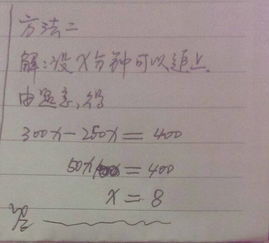 方法二
解:设x分钟可以追上.
由题意,得
300x-250x=400
50x=400
x=8
答